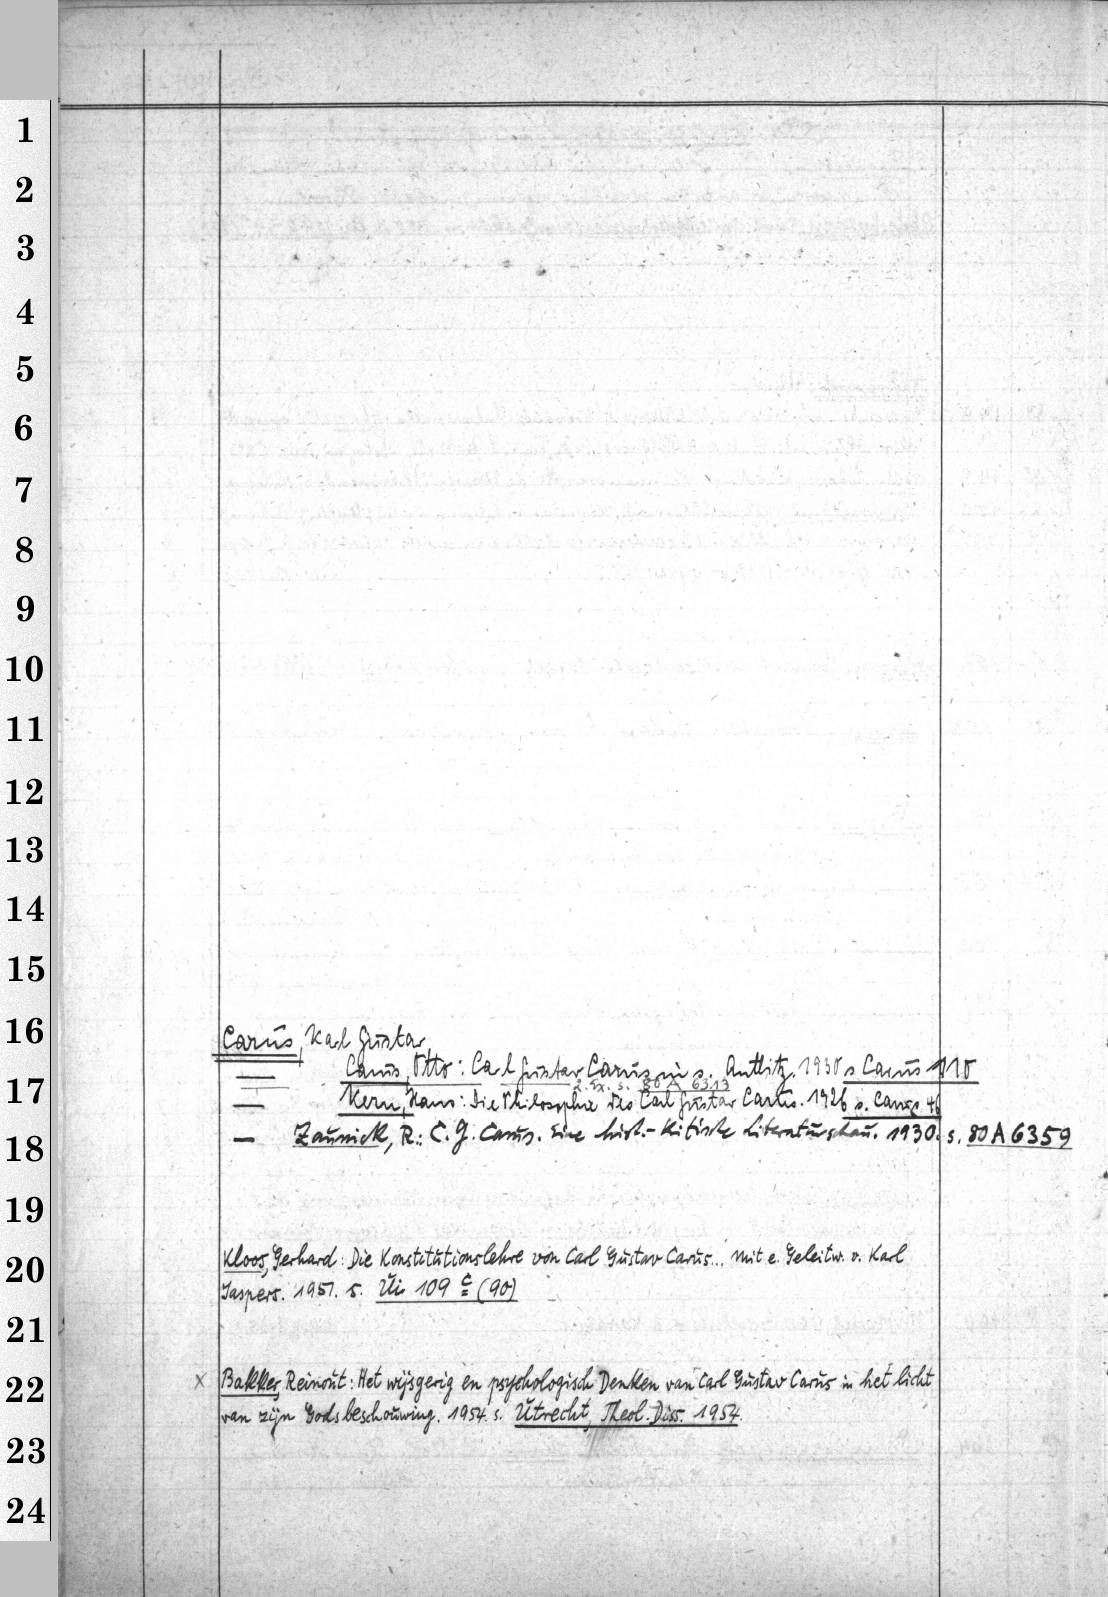 1
2
3
4
5
6
7
8
9
10
11
12
13
14
15
16
17
18
19
20
21
22
23
24
Carus, Karl Gustav
— Carus, Otto: Carl Gustav Carus in s. Antlitz. 1930 s Carus 110
2. Ex. s. 80 A 6313
— Kern, Hans: Die Philosophie des Carl Gustav Carus. 1926 s. Carus 46
— Zaunick, R.: C. G. Carus. Eine hist.-kritische Literaturschau. 1930. s. 80 A 6359
Kloos, Gerhard: Die Konstitutionslehre von Carl Gustav Carus... Mit e. Geleitw. v. Karl
Jaspers. 1951. s. Üi 109 c (90)
x Bakker, Reinout: Het wijsgerig en psychologisch Denken van Carl Gustav Carus in het licht
van zijn Godsbeschouwing. 1954. s. Utrecht, Theol. Diss. 1954.